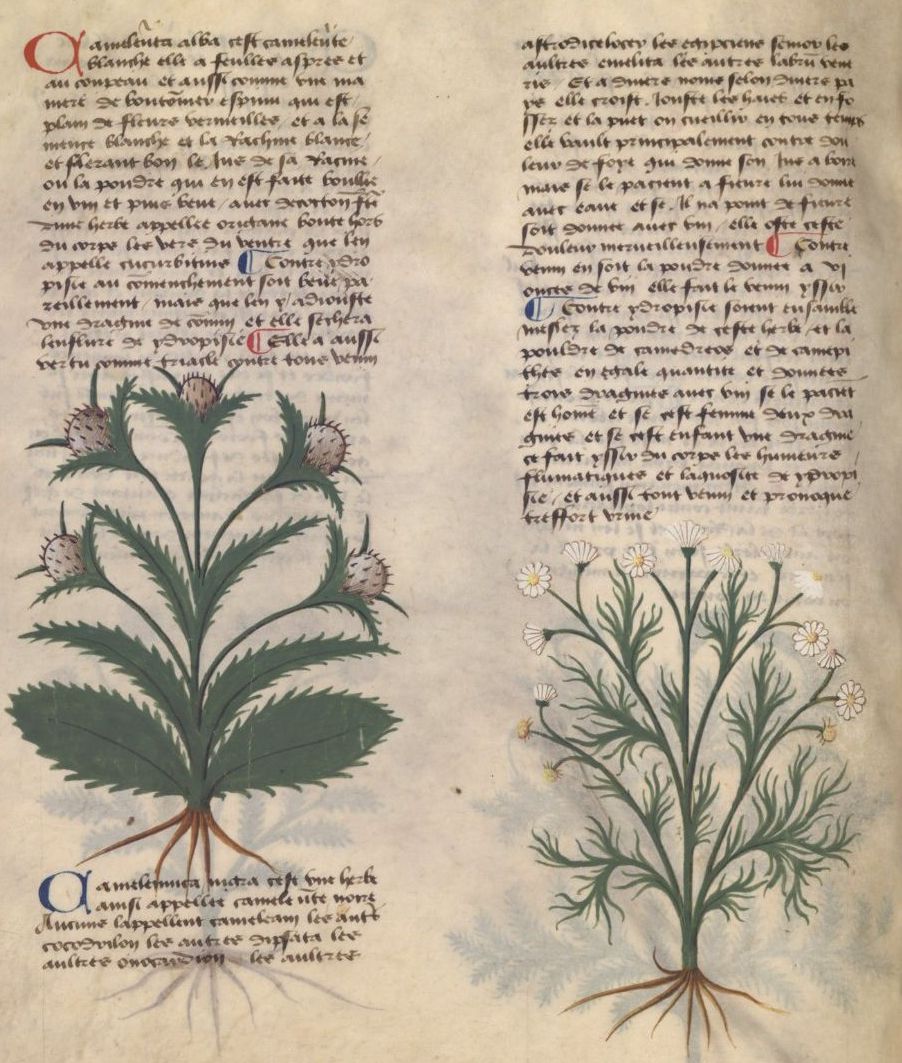 Cameleũta alba cest cameleũte
blanche elle a feulles aspres et
au coupeau et aussi comme vne ma
niere de boutõmier espineu qui est
plain de fleurs vermeilles et a la se
mence blanche et la Rachine blance
et flerant bon le Jus de sa Racine
ou la poudre qui en est faite boullie
en vin et puis beut auec decoction
dune herbe appellee origane boute hors
du corps les vers du ventre que len
appelle cucurbitins Contre ydro
pisie au comenchement soit beue pa
reillement mais que len y adiouste
vne dragme de comin et elle sechera
lenflure de ydropisie Elle a aussi
vertu comme triacle contre tous venin
Cameleunta nigra cest vne herbe
ainsi appellee cameleũte noire
Aucuns lappellent cameleam les autrs
cocodrilon les autres dipsata les
aultres onocardion les aultres
astrodicelocey les egipciens semor les
aultres emelita les autres labrũ vene
ris Et a diuers noms selon diuers pa
ys elle croist Jouste les haies et en fo
ssez et la puet on cueillir en tous temps
elle vault principalement contre dou
leur de foye qui donne son Jus a boire
mais se le pacient a fieure lui donne
auec eaue et se Il na point de fieure
soit donnee auec vin elle oste ceste
douleur merueilleusement Contre
venin en soit la poudre donnee a vi
onces de vin elle fait le venin yssir
Contre ydropisie soient ensamble
meslez la poudre de ceste herbe et la
pouldre de camedreos et de camepi
theos en egale quantite et donnees
trois dragmes auec vin se le paciẽt
est home et se cest femme deux dra
gmes et se cest enfant vne dragme
ce fait yssir du corps les humeurs
flumatiques et laquosite de ydropi
sie et aussi tout venin et prouoque
tresfort vrine